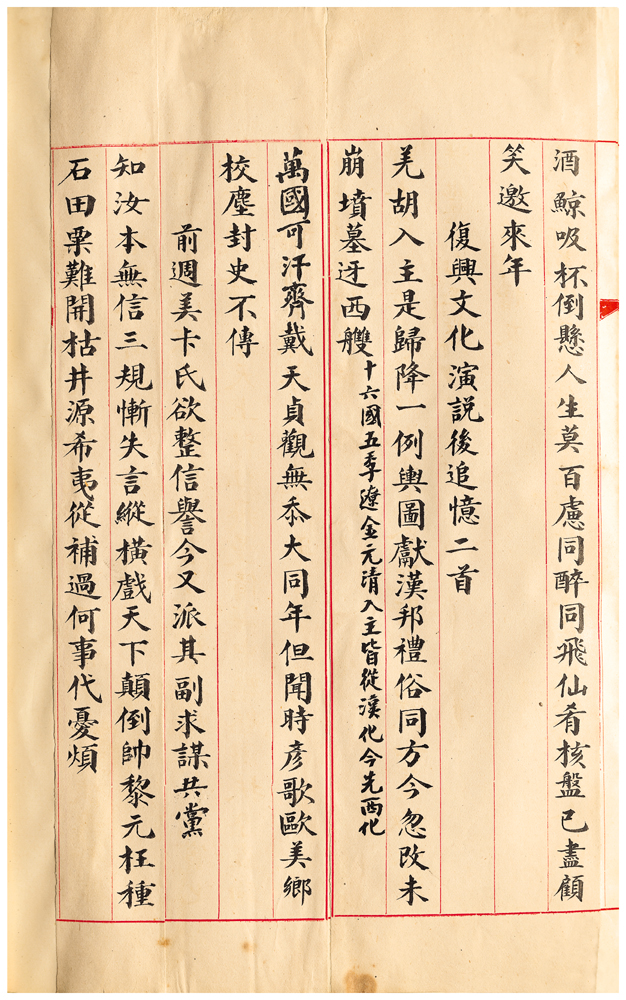 酒鯨吸杯倒懸人生莫百慮同醉同飛仙肴核盤已盡顧
笑邀來年
復興文化演説後追憶二首
羌胡入主是歸降一例輿圖獻漢邦禮俗同方今忽改未
崩墳墓迓西艭十六國五季遼金元清入主皆從漢化今先西化
萬國可汗齊戴天貞觀無忝大同年但聞時彥歌歐美鄉
校塵封史不傳
前週美卡氏欲整信譽今又派其副求謀共黨
知汝本無信三規慚失言縱橫戲天下顛倒帥黎元枉種
石田粟難開枯井源希夷從補過何事代憂煩